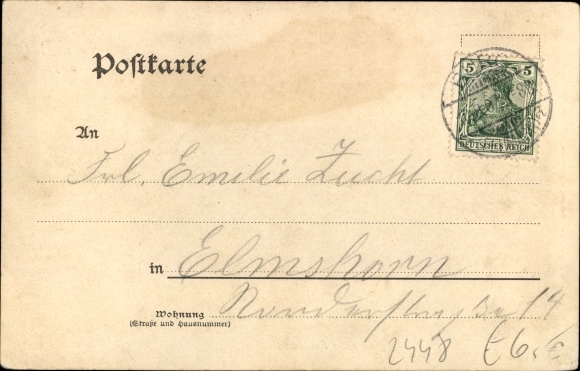 Postkarte
5 5
DEUTSCHES REICH
An
Frl. Emilie Zucht
in Elmshorn
Wohnung
(Straße und Hausnummer)
Norderstraße 14
2448 E6.